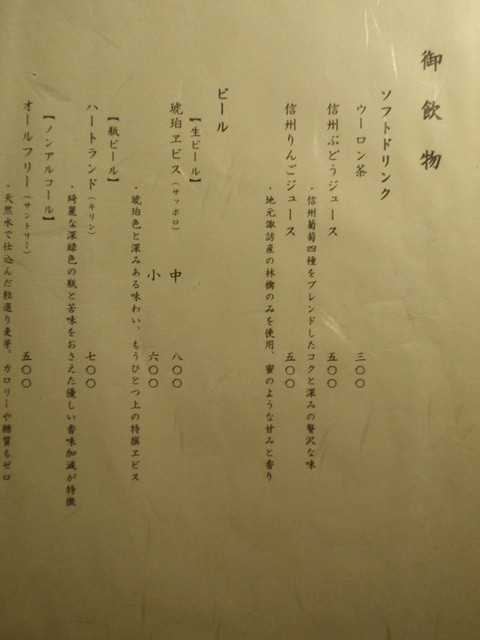 御飲物
ソフトドリンク
ウーロン茶 三〇〇
信州ぶどうジュース 五〇〇
・信州葡萄四種をブレンドしたコクと深みの贅沢な味
信州りんごジュース 五〇〇
・地元諏訪産の林檎のみを使用、蜜のような甘みと香り
ビール
【生ビール】
琥珀ヱビス（サッポロ） 中 八〇〇
小 六〇〇
・琥珀色と深みある味わい、もうひとつ上の特撰ヱビス
【瓶ビール】
ハートランド（キリン） 七〇〇
・綺麗な深緑色の瓶と苦味をおさえた優しい香味加減が特徴
【ノンアルコール】
オールフリー（サントリー） 五〇〇
・天然水で仕込んだ粒選り麦芽。カロリーや糖質もゼロ